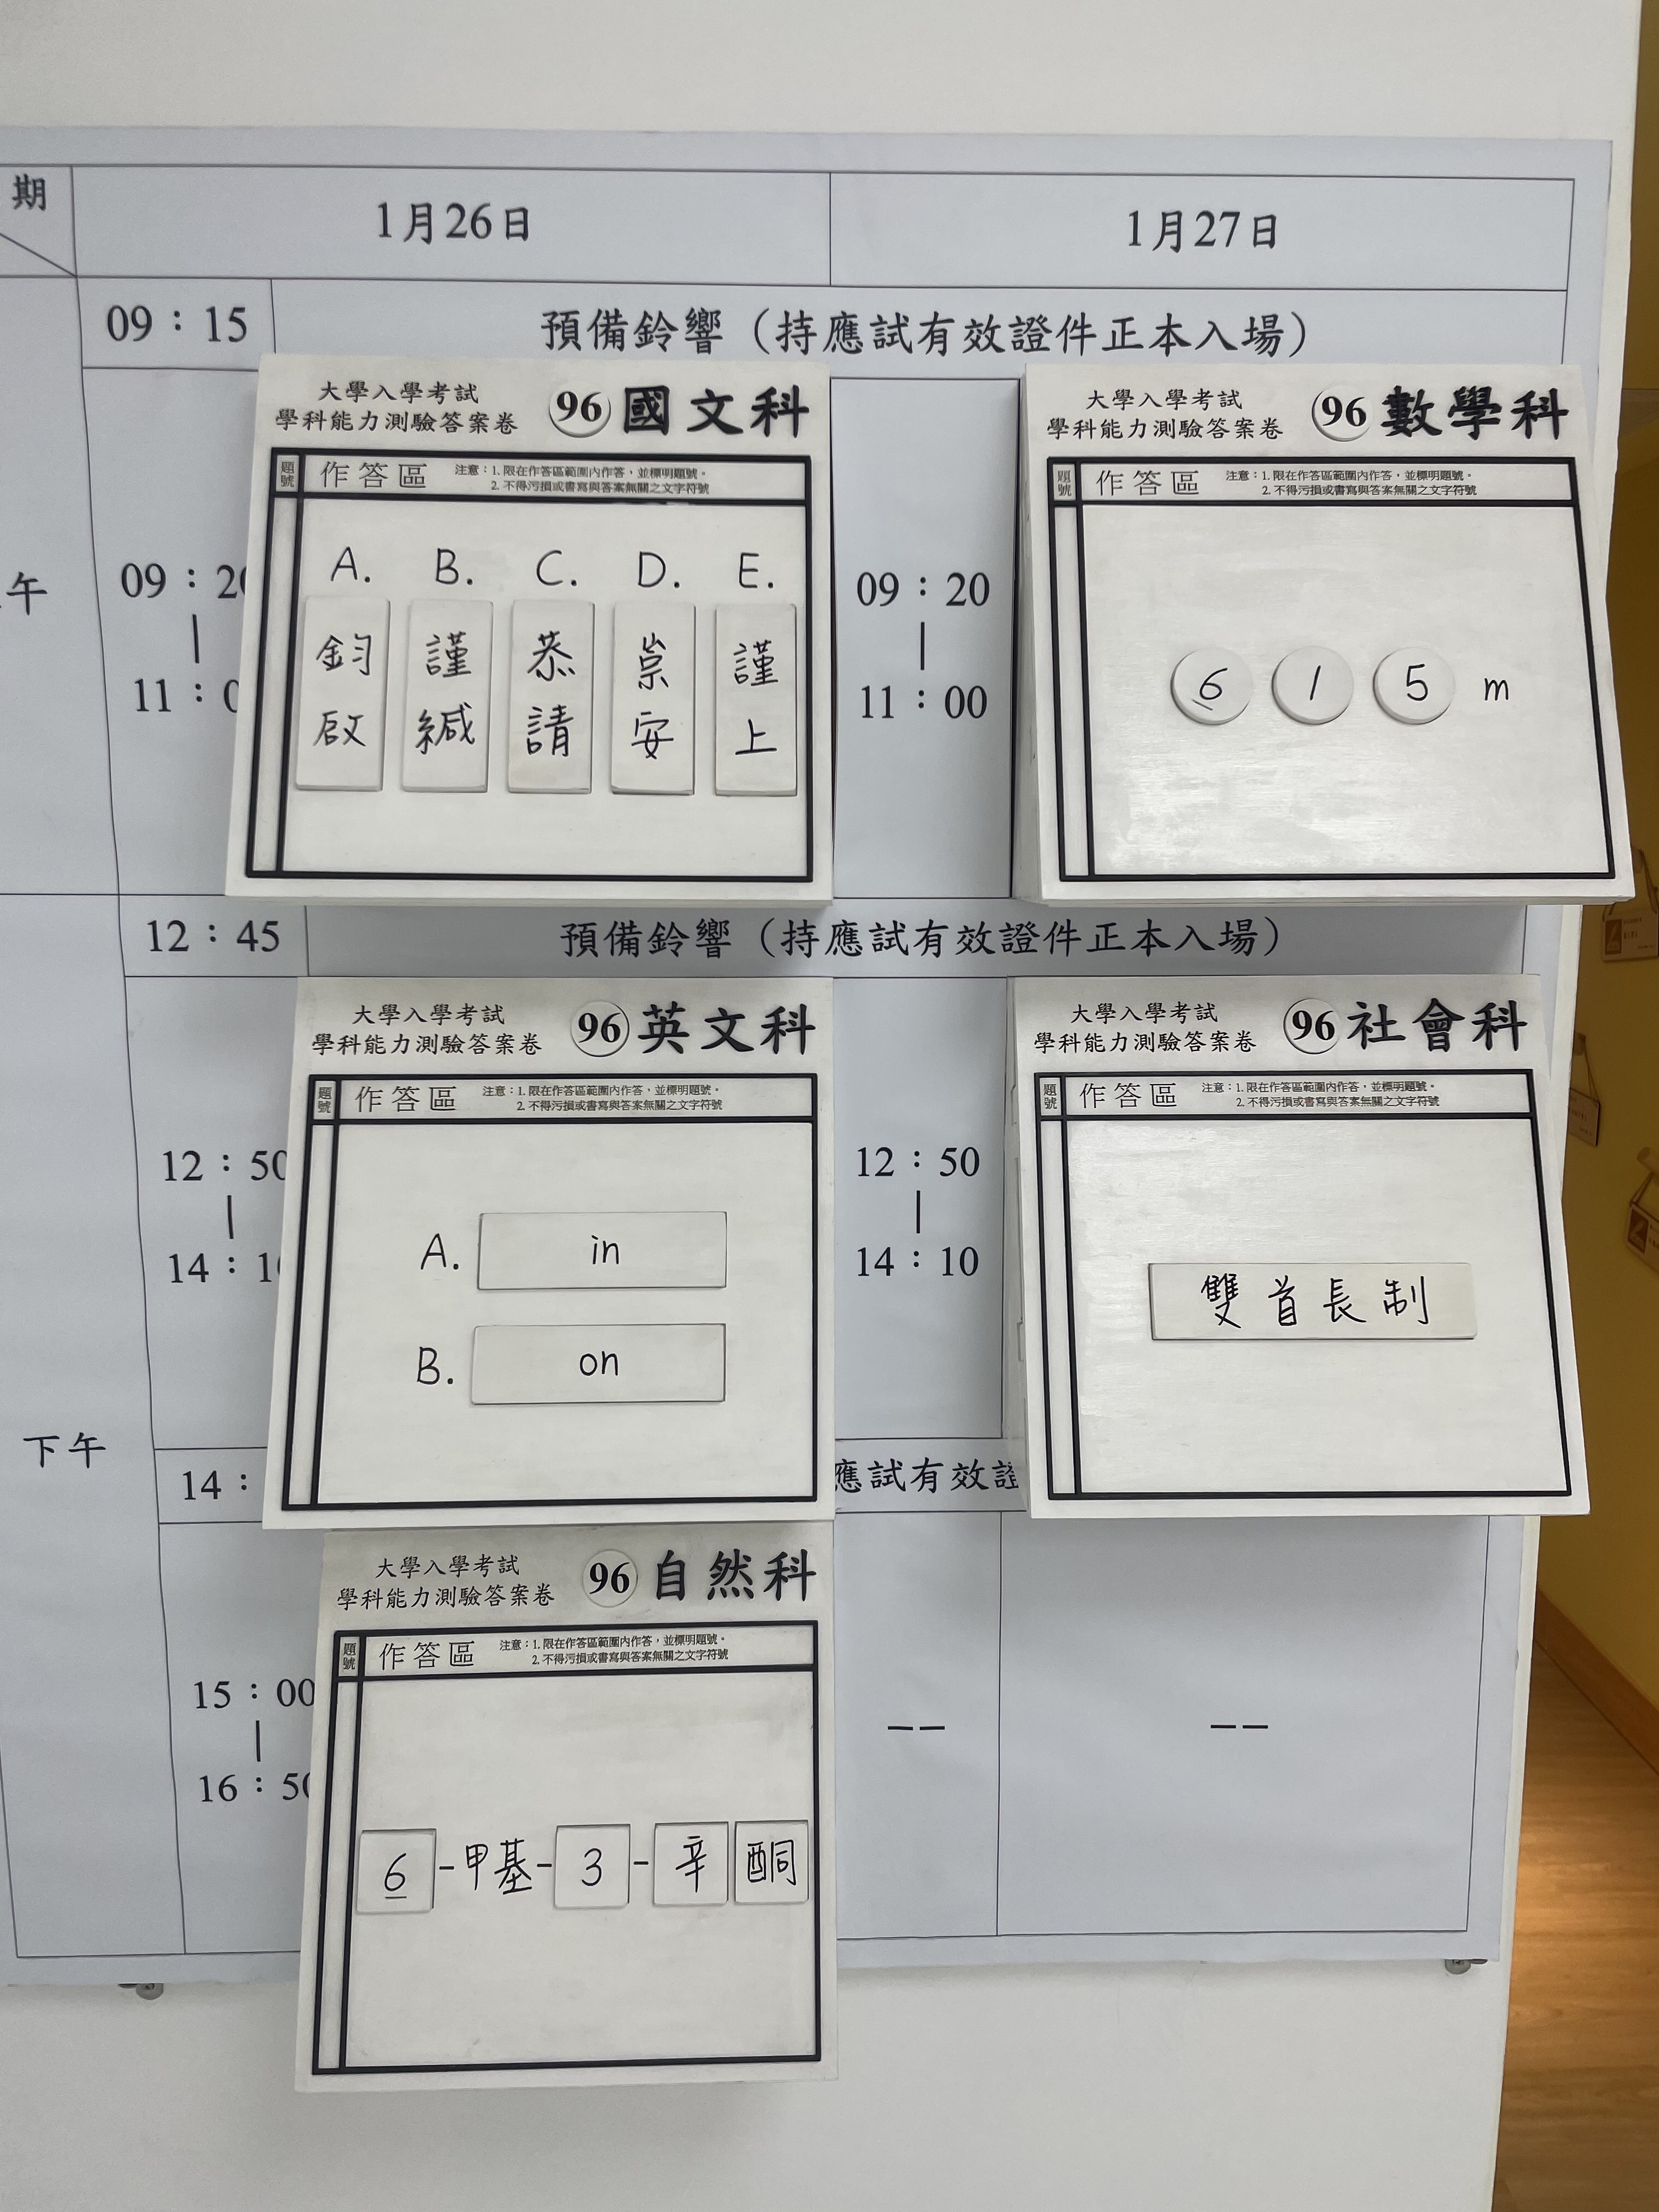 期
1月26日
1月27日
09：15
預備鈴響（持應試有效證件正本入場）
午
09：20
|
11：0
大學入學考試
學科能力測驗答案卷
96 國文科
題號
作答區
注意：1. 限在作答區範圍內作答，並標明題號。
2. 不得污損或書寫與答案無關之文字符號
A. B. C. D. E.
鈞啟 謹緘 恭請 崇安 謹上
09：20
|
11：00
大學入學考試
學科能力測驗答案卷
96 數學科
題號
作答區
注意：1. 限在作答區範圍內作答，並標明題號。
2. 不得污損或書寫與答案無關之文字符號
6 1 5 m
12：45
預備鈴響（持應試有效證件正本入場）
下午
12：50
|
14：10
大學入學考試
學科能力測驗答案卷
96 英文科
題號
作答區
注意：1. 限在作答區範圍內作答，並標明題號。
2. 不得污損或書寫與答案無關之文字符號
A. in
B. on
12：50
|
14：10
大學入學考試
學科能力測驗答案卷
96 社會科
題號
作答區
注意：1. 限在作答區範圍內作答，並標明題號。
2. 不得污損或書寫與答案無關之文字符號
雙首長制
14：
應試有效證
15：00
|
16：50
大學入學考試
學科能力測驗答案卷
96 自然科
題號
作答區
注意：1. 限在作答區範圍內作答，並標明題號。
2. 不得污損或書寫與答案無關之文字符號
6-甲基-3-辛酮
——
——